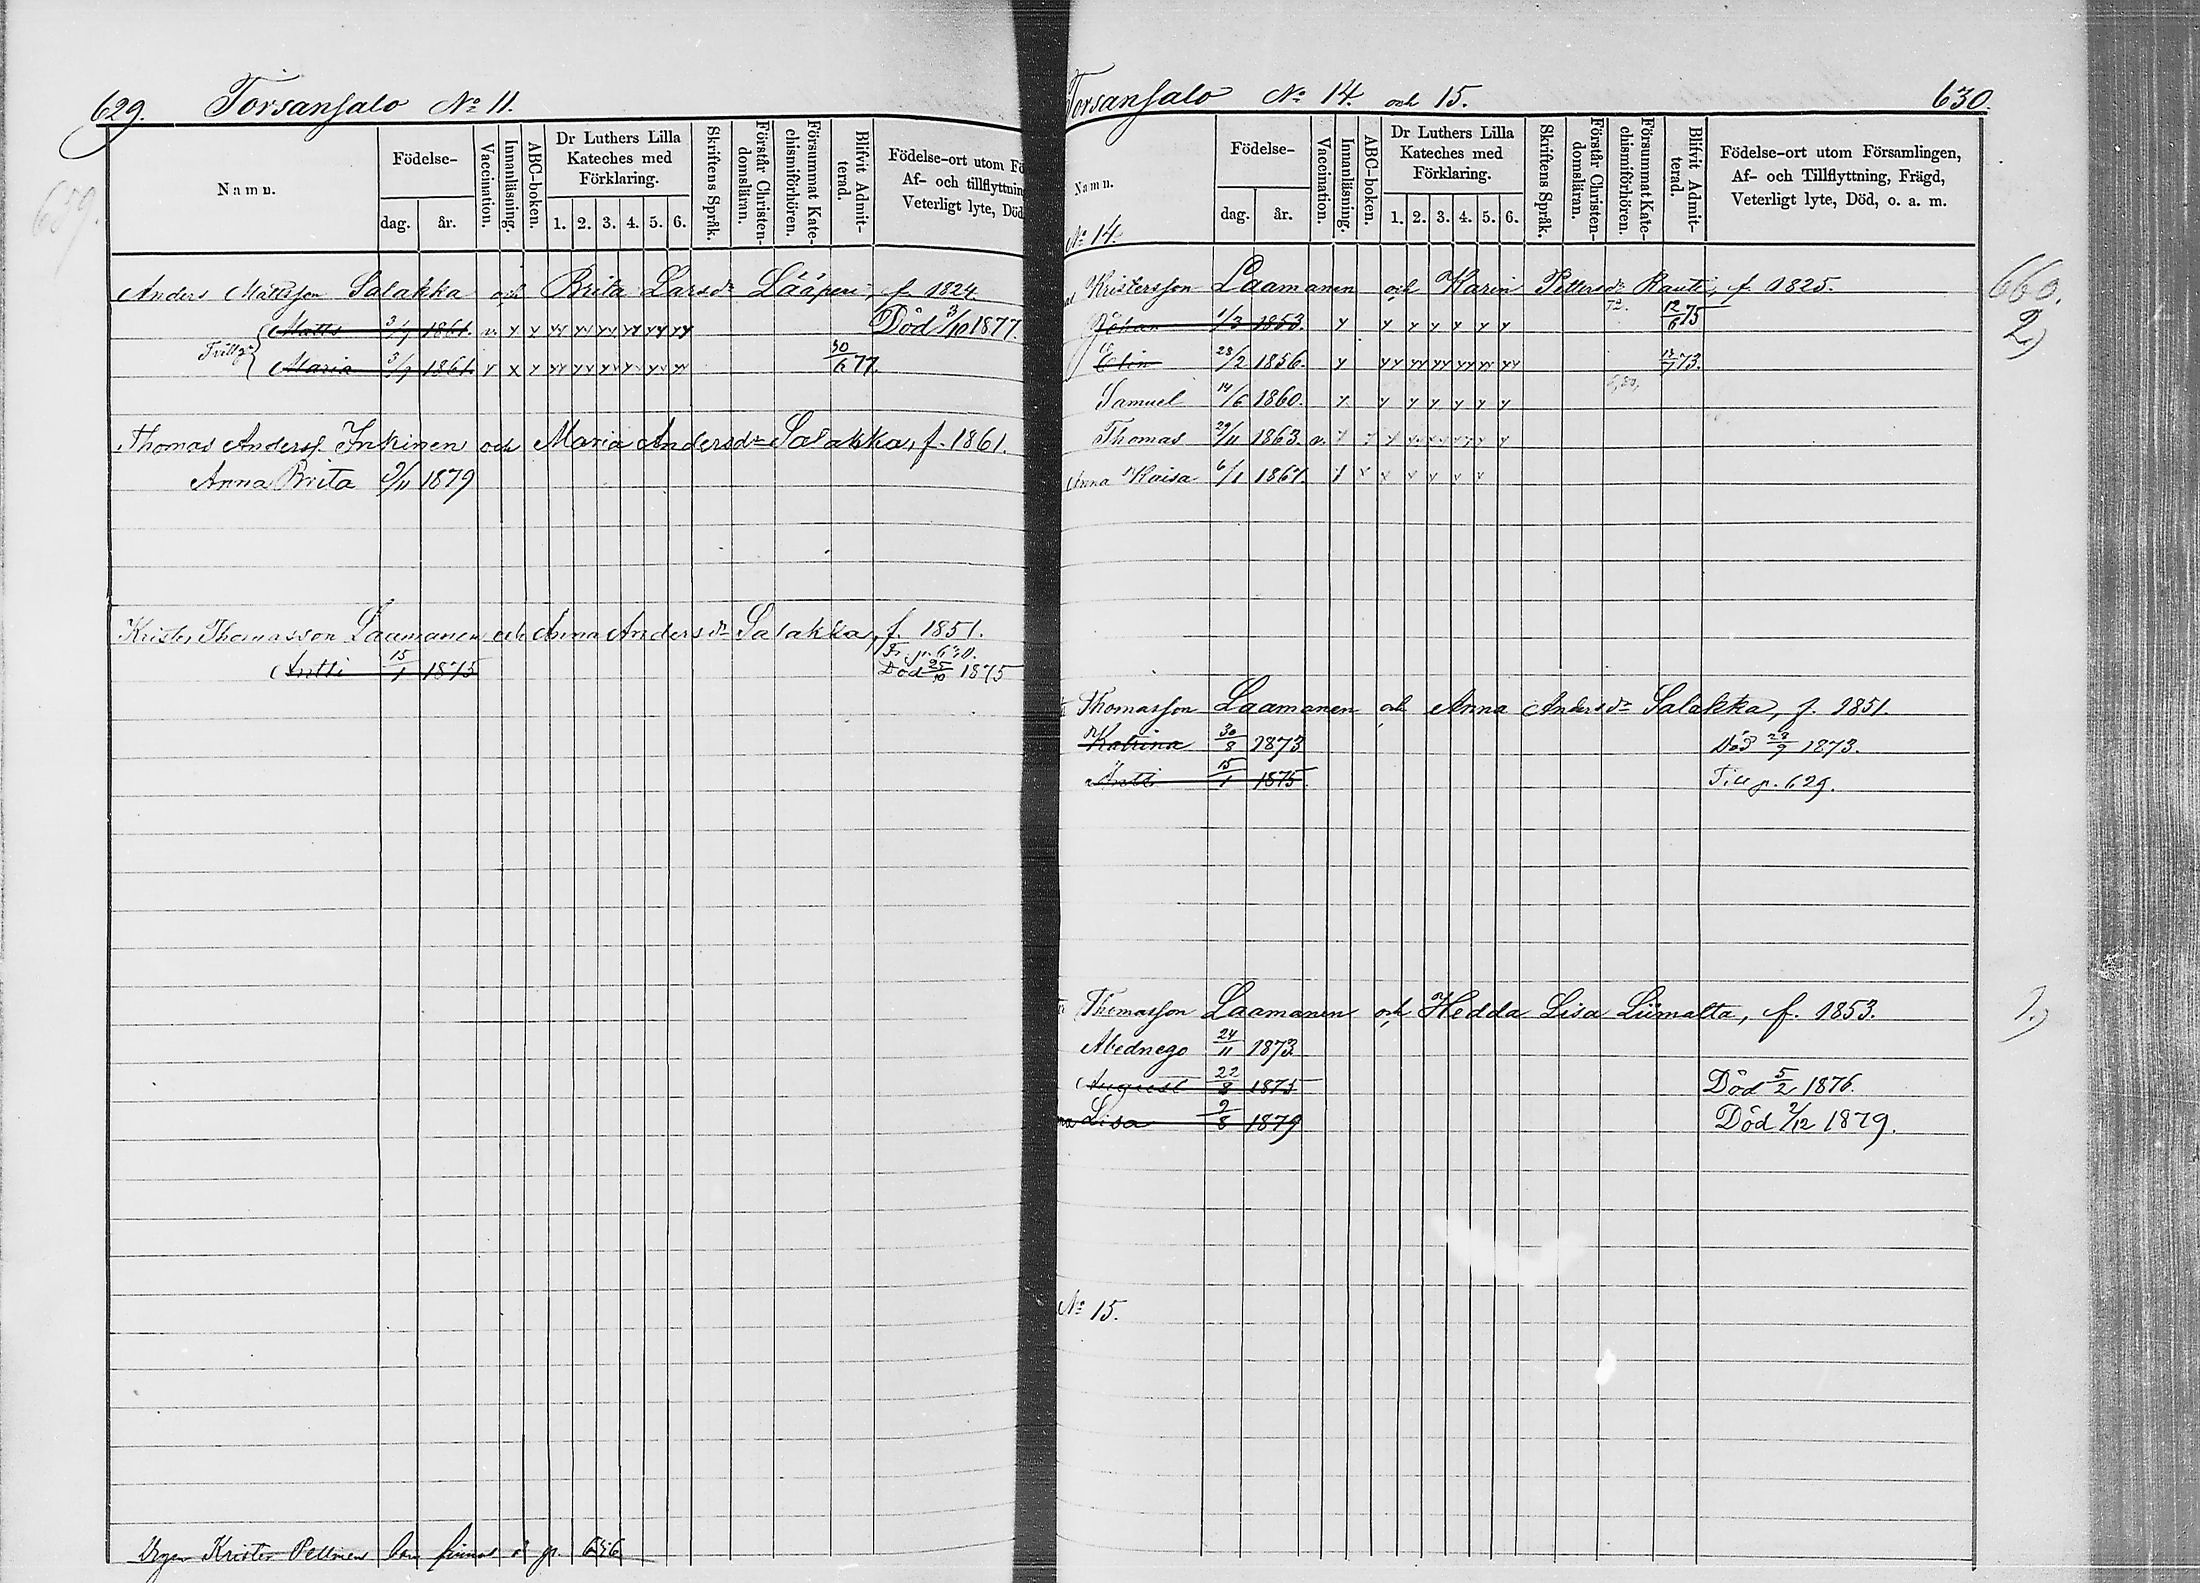 629. Torsansalo No 11.
659.
Namn.
Födelse-
dag. år.
Vaccination.
Innanläsning.
ABC-boken.
Dr Luthers Lilla
Kateches med
Förklaring.
1. 2. 3. 4. 5. 6.
Skriftens Språk.
Förstår Christen-
domsläran.
Försummat Kate-
chismiförhören.
Blifvit Admit-
terad.
Födelse-ort utom Fö
Af- och tillflyttning
Veterligt lyte, Död
Anders Mattsson Salakka och Brita Larsdr Lääperi, f. 1824.
Matts 3/7 1861. v. x x xx xx xx xx xx xx Död 3/10 1877.
Tvillgr
Maria 3/7 1861. v x x xx xx xx xx xx xx 30/6 77.
Thomas Anderss. Inkinen och Maria Andersdr Salakka, f. 1861.
Anna Brita 9/11 1879
Krister Thomasson Laamanen och Anna Andersdr Salakka, f. 1851.
Fr. p. 630.
Antti 15/1 1875 Död 25/10 1875
Krister Pellinens barn finnas å p. 656
Torsansalo No 14. och 15. 630.
Namn.
Födelse-
dag. år.
Vaccination.
Innanläsning.
ABC-boken.
Dr Luthers Lilla
Kateches med
Förklaring.
1. 2. 3. 4. 5. 6.
Skriftens Språk.
Förstår Christen-
domsläran.
Försummat Kate-
chismiförhören.
Blifvit Admit-
terad.
Födelse-ort utom Församlingen,
Af- och Tillflyttning, Frägd,
Veterligt lyte, Död, o. a. m.
No 14.
660.
Kristersson Laamanen och Karin Pettersdr Rauti, f. 1825.
2)
Johan 1/3 1853. x x x x x x x 72. 12/6 75
Elin 28/2 1856. x xx xx xx xx xx xx 13/7 73.
Samuel 14/6 1860. x x x x x x x
Thomas 29/11 1863. v. x x x x x x x x
Anna Kaisa 6/1 1867. x x x x x x x
Thomasson Laamanen och Anna Andersdr Salakka, f. 1851.
Katrina 30/8 1873 Död 28/9 1873.
Antti 15/1 1875. Till p. 629.
Thomasson Laamanen och Hedda Lisa Liimatta, f. 1853.
1.)
Abednego 24/11 1873
August 22/8 1875 Död 5/2 1876.
Lisa 9/8 1879 Död 2/12 1879.
No 15.